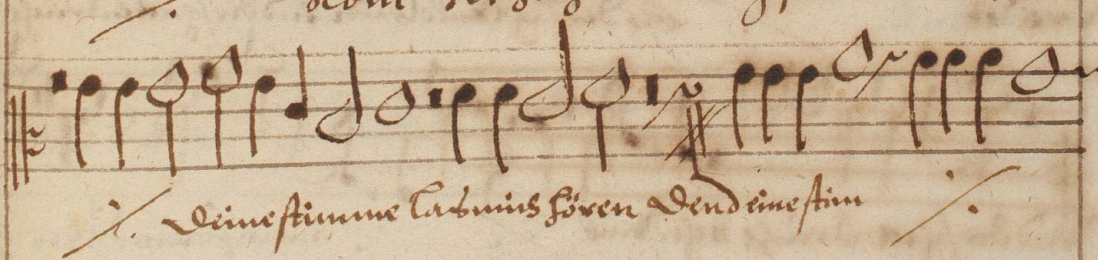 deine stimme las mich hören Den deine stim